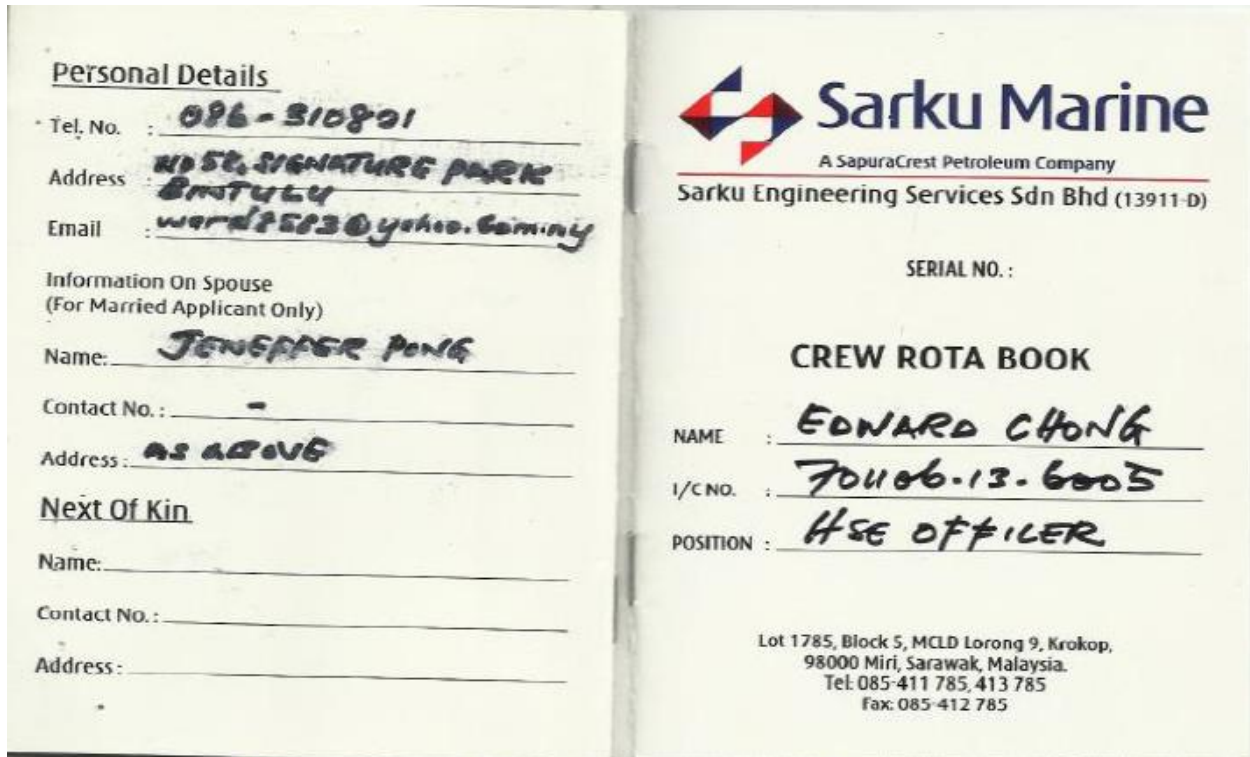 Personal Details
Tel. No. : 086-310801
Address : NO 52, SIGNATURE PARK
BINTULU
Email : @yahoo.com.my
Information On Spouse
(For Married Applicant Only)
Name: JENEFFER PONG
Contact No. : -
Address : AS ABOVE
Next Of Kin
Name:
Contact No. :
Address :
Sarku Marine
A SapuraCrest Petroleum Company
Sarku Engineering Services Sdn Bhd (13911-D)
SERIAL NO. :
CREW ROTA BOOK
NAME : EDWARD CHONG
I/C NO. : 701106-13-6005
POSITION : HSE OFFICER
Lot 1785, Block 5, MCLD Lorong 9, Krokop,
98000 Miri, Sarawak, Malaysia.
Tel: 085-411 785, 413 785
Fax: 085-412 785